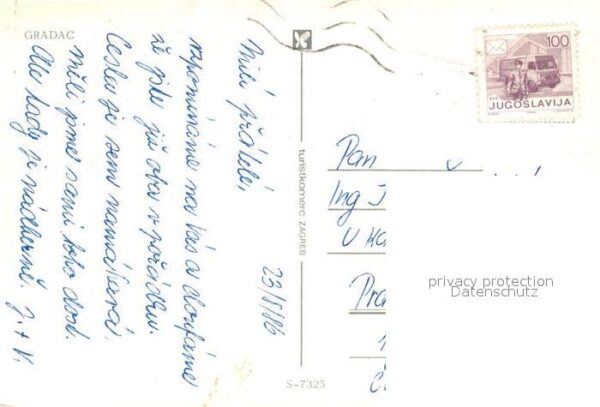 GRADAC
23/8/86
Milí přátelé,
vzpomínáme na Vás a doufáme
že jste již oba v pořádku.
Cesta je sem namáhavá,
měli jsme sami toho dost.
Ale tady je nádherně. J. + V.
turistkomerc ZAGREB
S-7325
100
JUGOSLAVIJA
Pan
Ing J
U Ka
Pra
1
privacy protection
Datenschutz